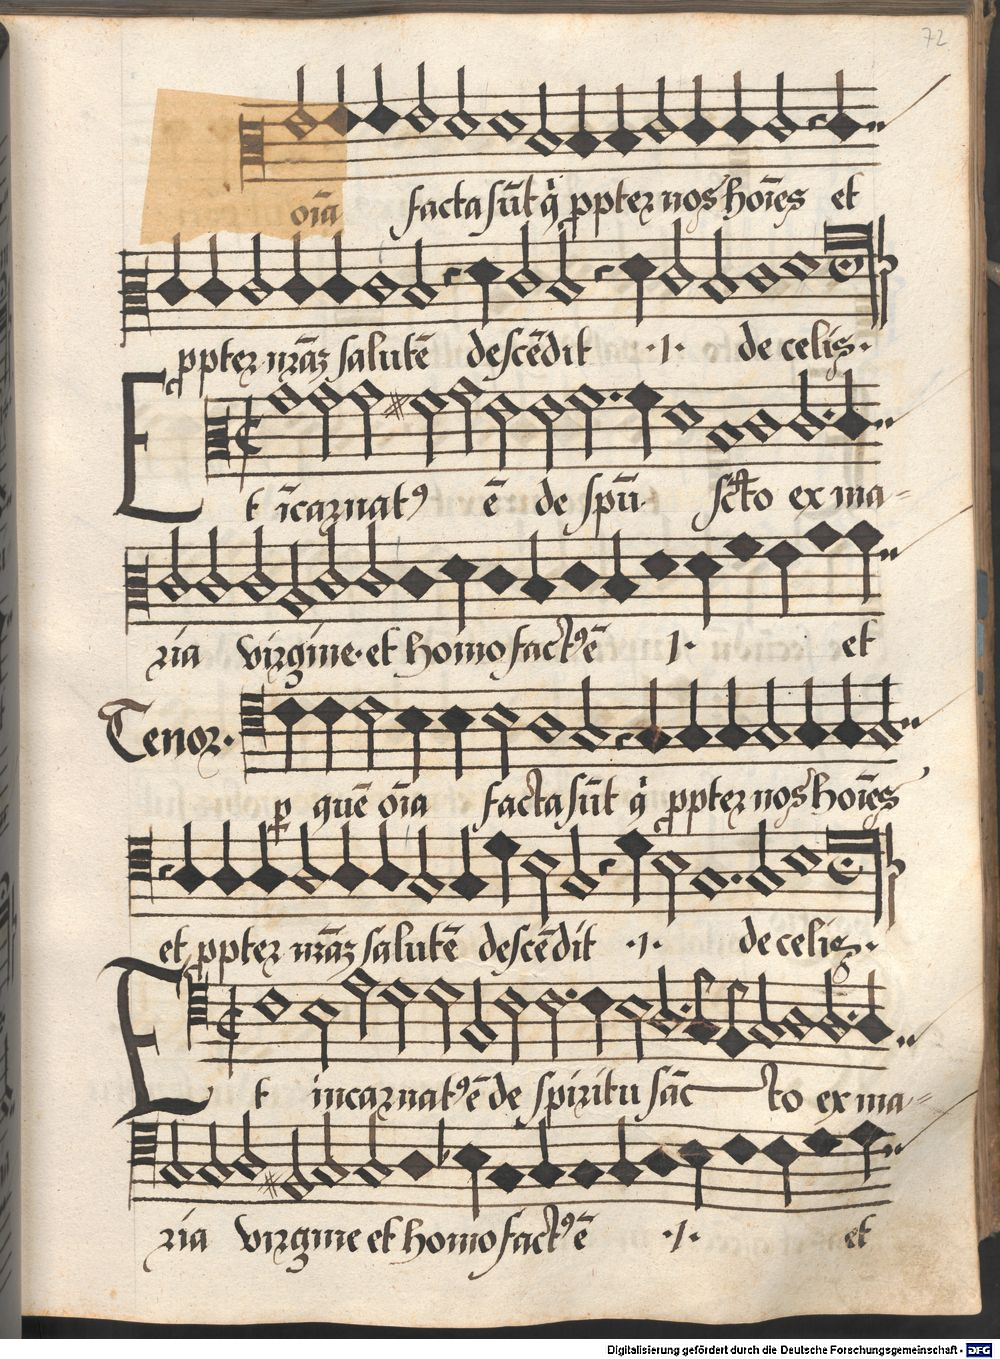 72
oīa facta sūt q̇ ppter nos hoīes et
ppter nr̄aȝ salutē descēdit ·1· de celis·
Et īcarnatꝰ ē de spū scto̅ ex ma=
ria virgine· et homo factꝰ ē ·1· et
Tenor·
p quē oīa facta sūt q̇ ppter nos hoīes
et ppter nr̄aȝ salutē descēdit ·1· de celis·
Et incarnatꝰ ē de spiritu sāc to ex ma=
ria virgine et homo factꝰ ē ·1· et
Digitalisierung gefördert durch die Deutsche Forschungsgemeinschaft - DFG